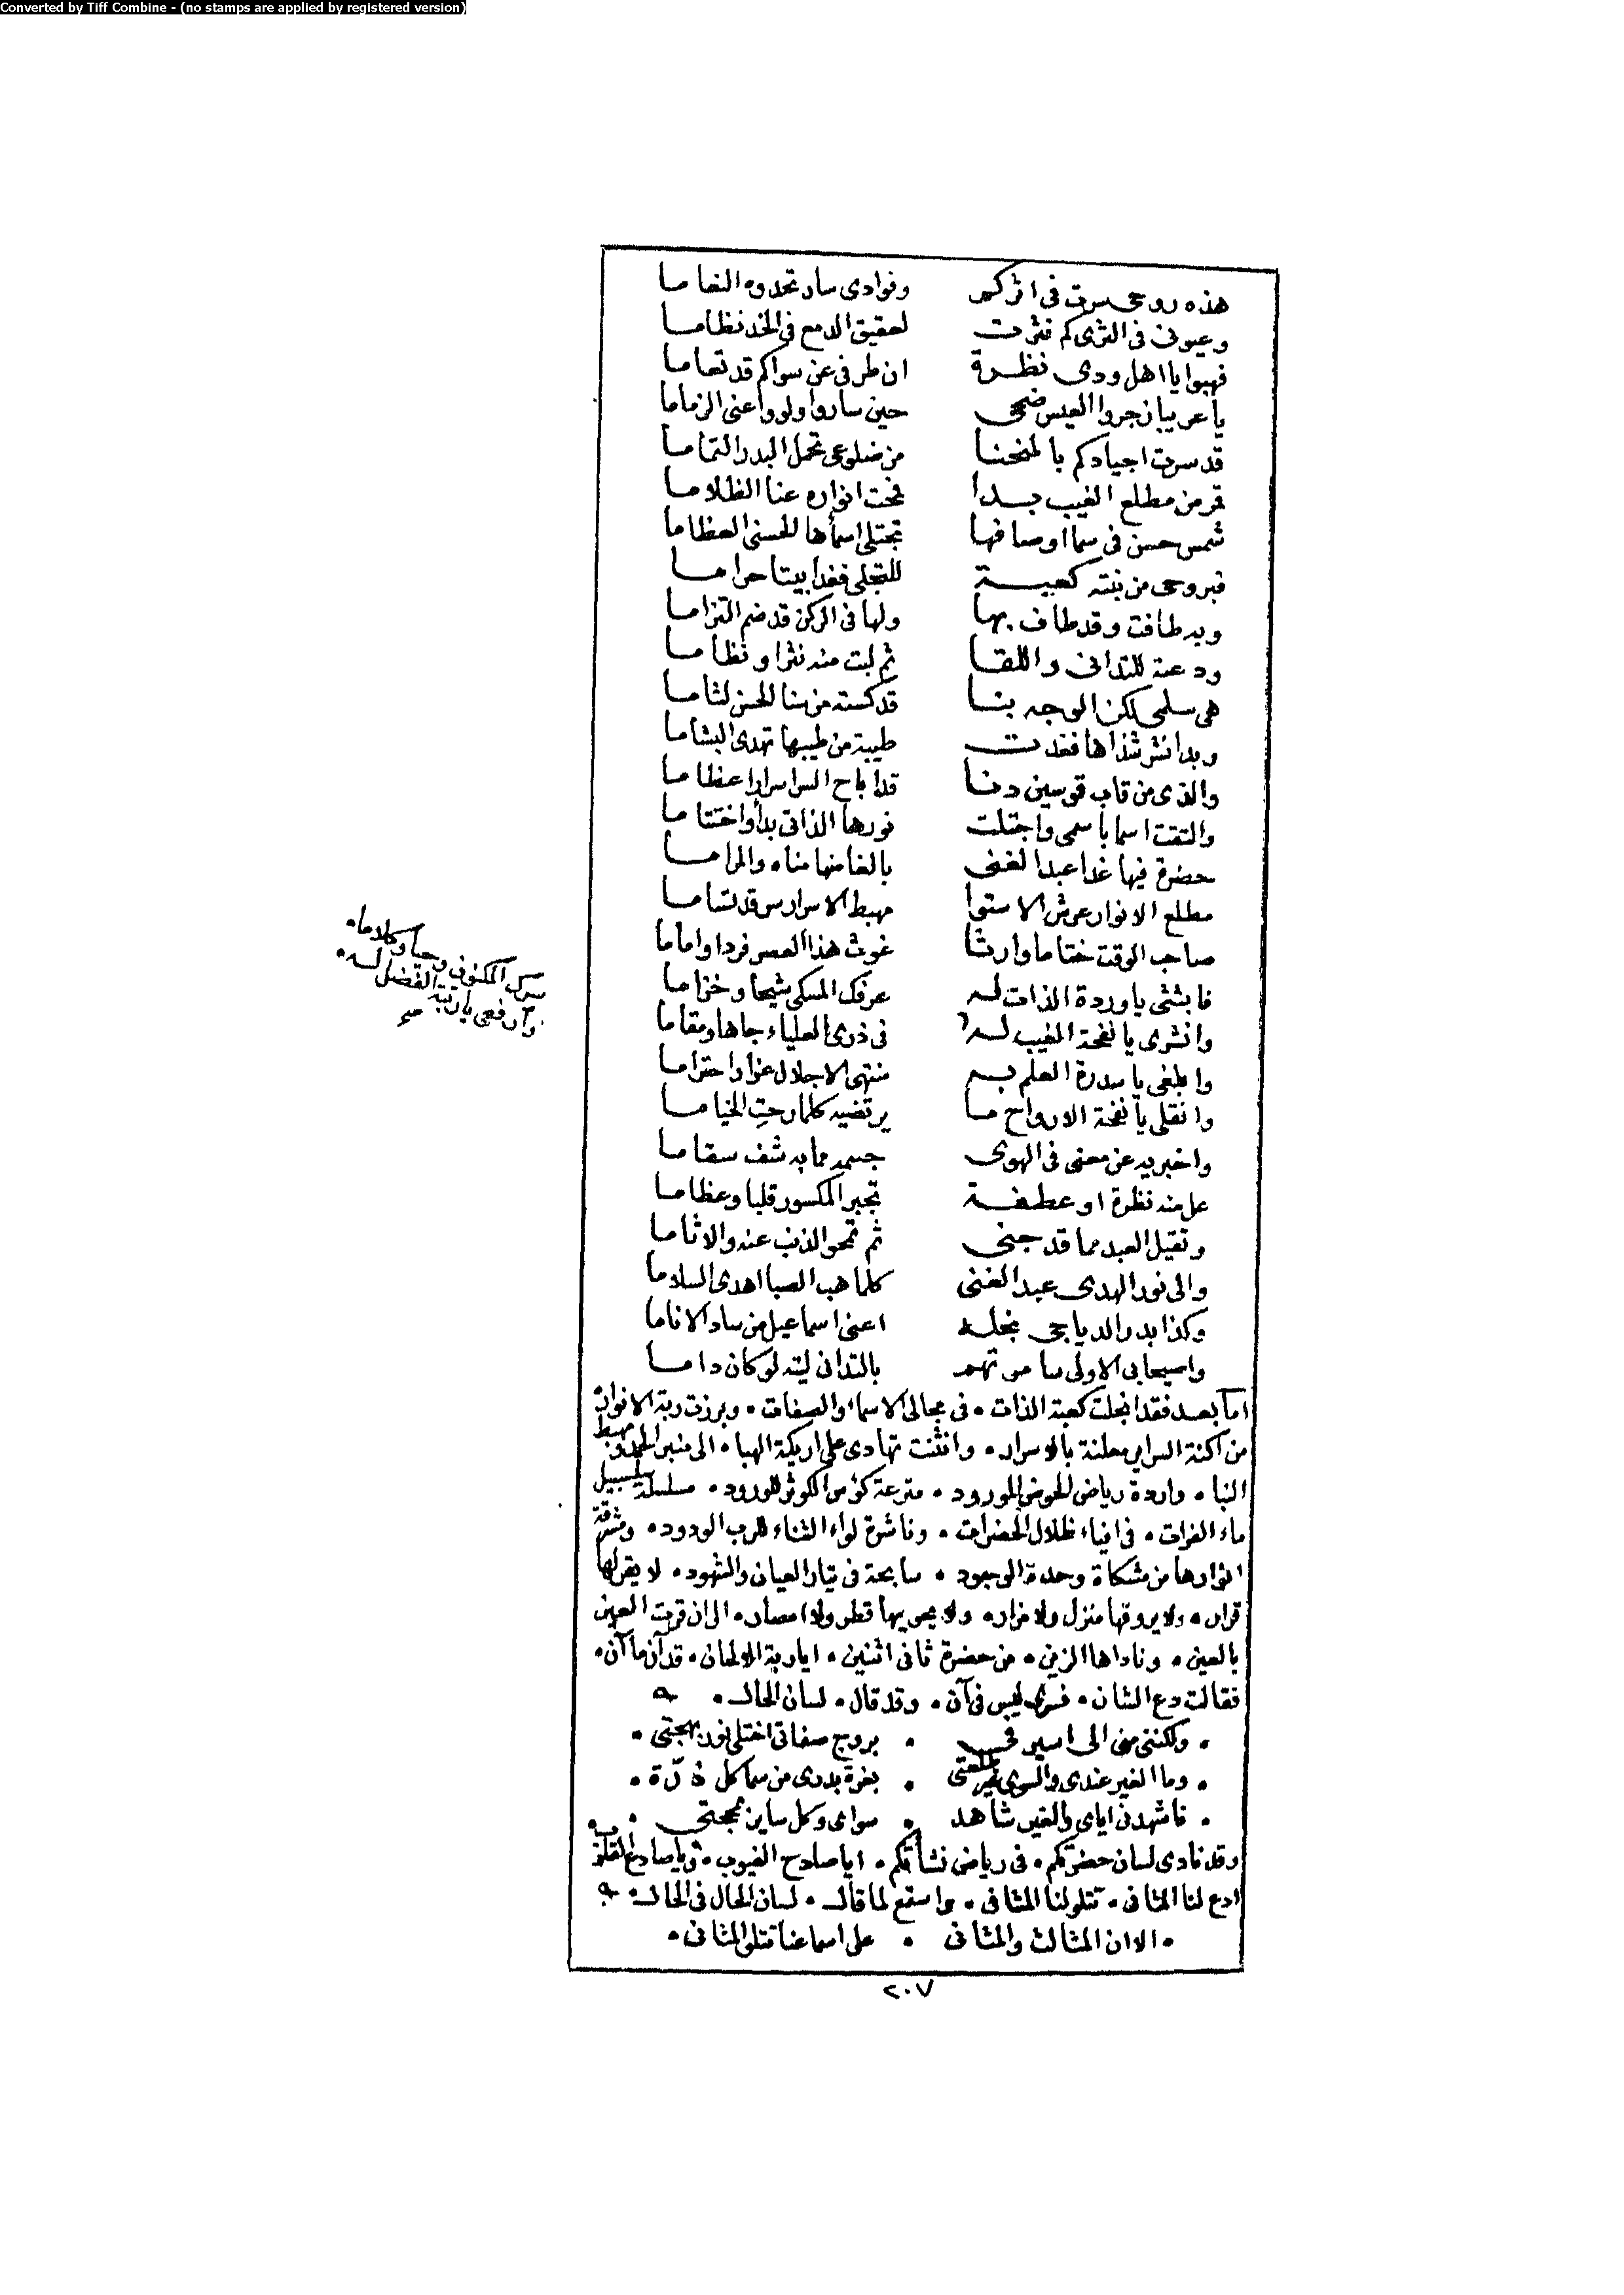 Converted by Tiff Combine - (no stamps are applied by registered version)
هذه روحى سرت فى اثركم وفوادى سار تحدوه النعاما
وعيونى فى الثرى كم نثرت لعقيق الدمع فى الخد نظاما
فهبوا يا اهل ودى نظرة ان طرفى عن سواكم قد تعاما
يا عريبا زجروا العيس ضحى حين ساروا ولووا عنى الزماما
قد سرت اجيادكم بالمنحنا من ضلوعى تحمل البدر التماما
قمر من مطلع الغيب بدا فمحت انواره عنا الظلاما
شمس حسن فى سما اوصافها تجتلى اسماءها الحسنى العظاما
فبروحى من بنته كعبة للتجلى فغدا بيتا حراما
وبه طافت وقد طاف بها ولها فى الركن قد ضم التزاما
ودعته للتدانى واللقا ثم لبت منه نثرا ونظاما
هى سلمى لكن الوجه بنا قد كسته من سنا الحسن لثاما
وبدا نشر شذاها فغدت طيبة من طيبها تهدى البشاما
والذى من قاب قوسين دنا قد اباح السر اسرارا عظاما
والتقت اسما باسمى واجتلت نورها الذاتى بدأ واختتاما
حضرة فيها غدا عبد الغنى بالغا منها مناه والمراما
مطلع الانوار عرش الاستوا مهبط الاسرار من قد تساما
صاحب الوقت ختاما وارثا غوث هذا العصر فردا واماما
فابثثى يا وردة الذات له عرفك المسكى شيحا وخزاما
وانشرى يا نفحة الغيب له فى ذرى العلياء جاها ومقاما
سرك المكنون وحيا وكلاما
وارفعى يا رتبة الفضل له
وابلغى يا سدرة العلم به منتهى الاجلال عزا واحتراما
وانقلى يا نفخة الارواح ما يرتضيه كلما رحت الخياما
واخبريه عن معنى فى الهوى جسمه مما به شف سقاما
عل منه نظرة او عطفة تجبر المكسور قلبا وعظاما
وتقيل العبد مما قد جنى ثم تمحو الذنب عنه والاثاما
والى نور الهدى عبد الغنى كلما هب الصبا اهدى السلاما
وكذا بدر الدياجى نجله اعنى اسماعيل من ساد الاناما
واصيحابى الاولى سامرتهم بالتدانى ليته لو كان داما
اما بعد فقد انجلت كعبة الذات • فى مجالى الاسماء والصفات • وبرزت ربة الانوار
من اكنة السراير معلنة بالاسرار • وانثنت تهادى على اريكة الهبا • الى منبر الحمد ومهبط
النبا • واردة رياض الحوض المورود • مترعة كؤس الكوثر للورود • مسلسلة سلسبيل
ماء الفرات • فى افياء ظلال الحضرات • وناشرة لواء الثناء للرب الودود • ومشرقة
انوارها من مشكاة وحدة الوجود • سابحة فى تيار العيان والشهود • لا يقر لها
قرار • ولا يروقها منزل ولا مزار • ولا يحويها قطر ولا امصار • الى ان قرت العين
بالعين • وناداها الزين • من حضرة ثانى اثنين • ايا ربة الالحان • قد آن ما آن •
فقالت دع الشان • فسرى ليس فى آن • وقد قال • لسان الحال •
• ولكننى منى الى اسير فى • بروج صفاتى اختلى نور بهجتى •
• وما الغير عندى والسوى غير طلعتى • بغرة بدرى من سما كل ذرة •
• فاشهدنى اياى والغير شاهد • سواى وكل ساير بمحجتى •
وقد نادى لسان حضرتكم • فى رياض نشأتكم • ايا صادح الغيوب • ويا صادع القلوب
ادع لنا المثانى • تتلو لنا المثانى • واسمع لما قال • لسان الحال فى الحال •
• الا ان المثالث والمثانى • على اسماعنا تتلو المثانى •
٢٠٧